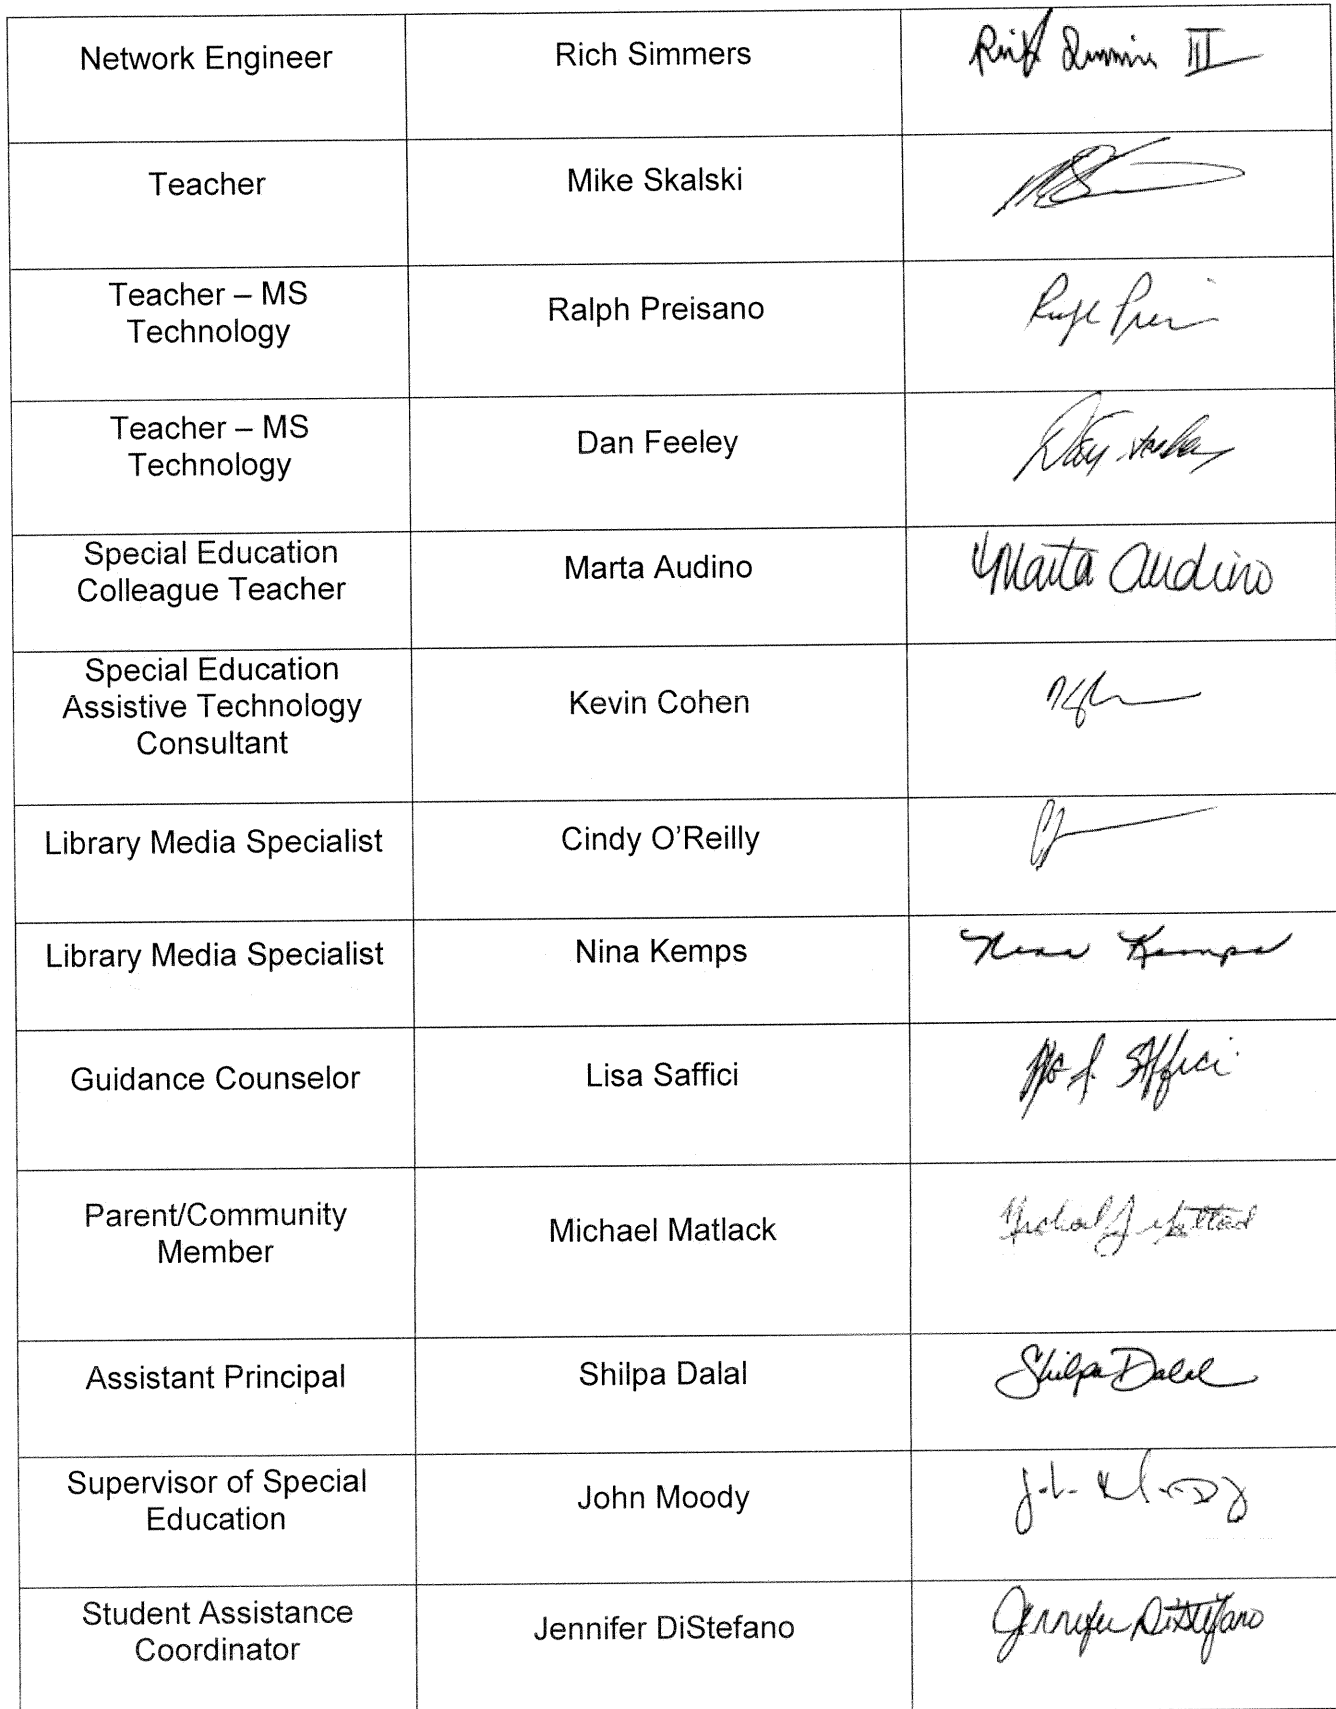 Network Engineer
Rich Simmers
III
Teacher
Mike Skalski
Teacher – MS
Technology
Ralph Preisano
Teacher – MS
Technology
Dan Feeley
Special Education
Colleague Teacher
Marta Audino
Marta Audino
Special Education
Assistive Technology
Consultant
Kevin Cohen
Library Media Specialist
Cindy O'Reilly
Library Media Specialist
Nina Kemps
Nina Kemps
Guidance Counselor
Lisa Saffici
Saffici
Parent/Community
Member
Michael Matlack
Michael J
Assistant Principal
Shilpa Dalal
Shilpa Dalal
Supervisor of Special
Education
John Moody
Student Assistance
Coordinator
Jennifer DiStefano
Jennifer DiStefano